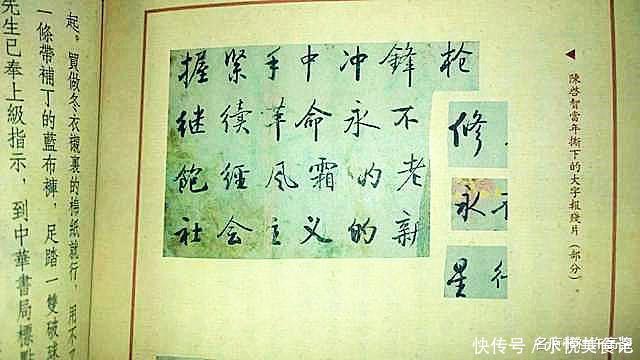 ◀ 陳啓智當年撕下的大字報殘片（部分）。
握紧手中冲鋒枪
继續革命永不修
饱經风霜的老永
社会主义的新星行
起。買做冬衣襯裏的棉紙就行，用不
一條帶補丁的藍布褲，足踏一雙破球
先生已奉上級指示，到中華書局標點
快传号／水悦美食记